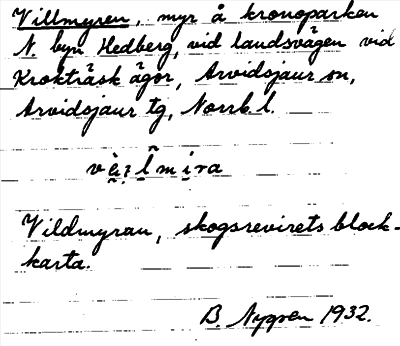 Villmyren, myr å kronoparken
N. byn Hedberg, vid landsvägen vid
Kroktjäsk ägor, Arvidsjaur sn,
Arvidsjaur tg, Norrb. l.
Vildmyran, skogsrevirets block-
karta.
B. Nygren 1932.